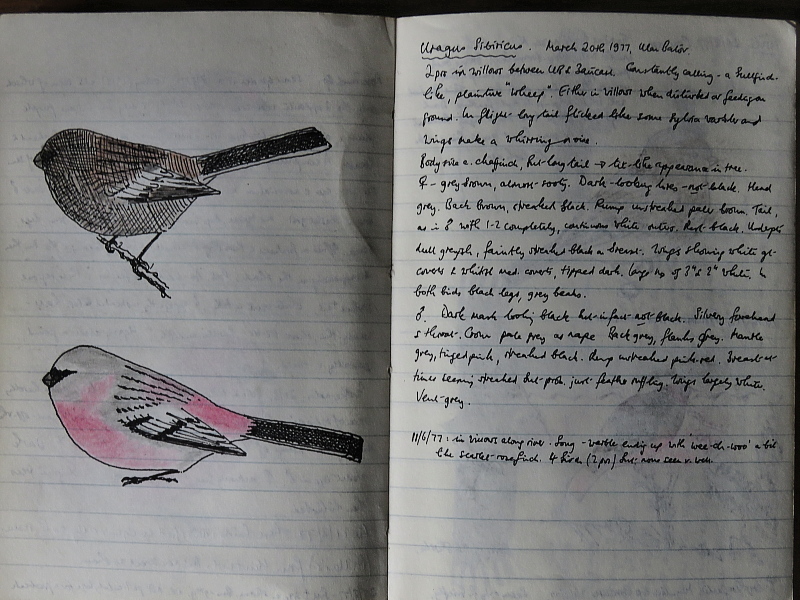 Uragus Sibiricus. March 20th 1977, Ulan Bator.
2 prs in willows between UB & Zaisan. Constantly calling - a bullfinch
like, plaintive "wheep". Either in willows when disturbed or feeding on
ground. In flight long tail flicked like some sylvia warbler and
wings make a whirring noise.
Body size a. chaffinch, but long tail → tit-like appearance in tree.
♀ - grey brown, almost sooty. Dark-looking lores - not black. Head
grey. Back brown, streaked black. Rump unstreaked paler brown. Tail,
as in ♂ with 1-2 completely, continuous white outers. Rest black. Underpts
dull greyish, faintly streaked black on breast. Wings showing white gt.
coverts & whitish med. coverts, tipped dark. Large of 3° & 2° white. In
both birds black legs, grey beaks.
♂. Dark mask looking black but in fact not black. Silvery forehead
& throat. Crown pale grey as nape. Back grey, flanks grey. Mantle
grey, tinged pink, streaked black. Rump unstreaked pink-red. Breast at
times seeming streaked but prob. just feather ruffling. Wings largely white.
Vent - grey.
11/6/77: in willows along river. Song - warble ending up with 'wee-ch-woo' a bit
like scarlet rosefinch. 4 birds (2 prs) but none seen v. well.